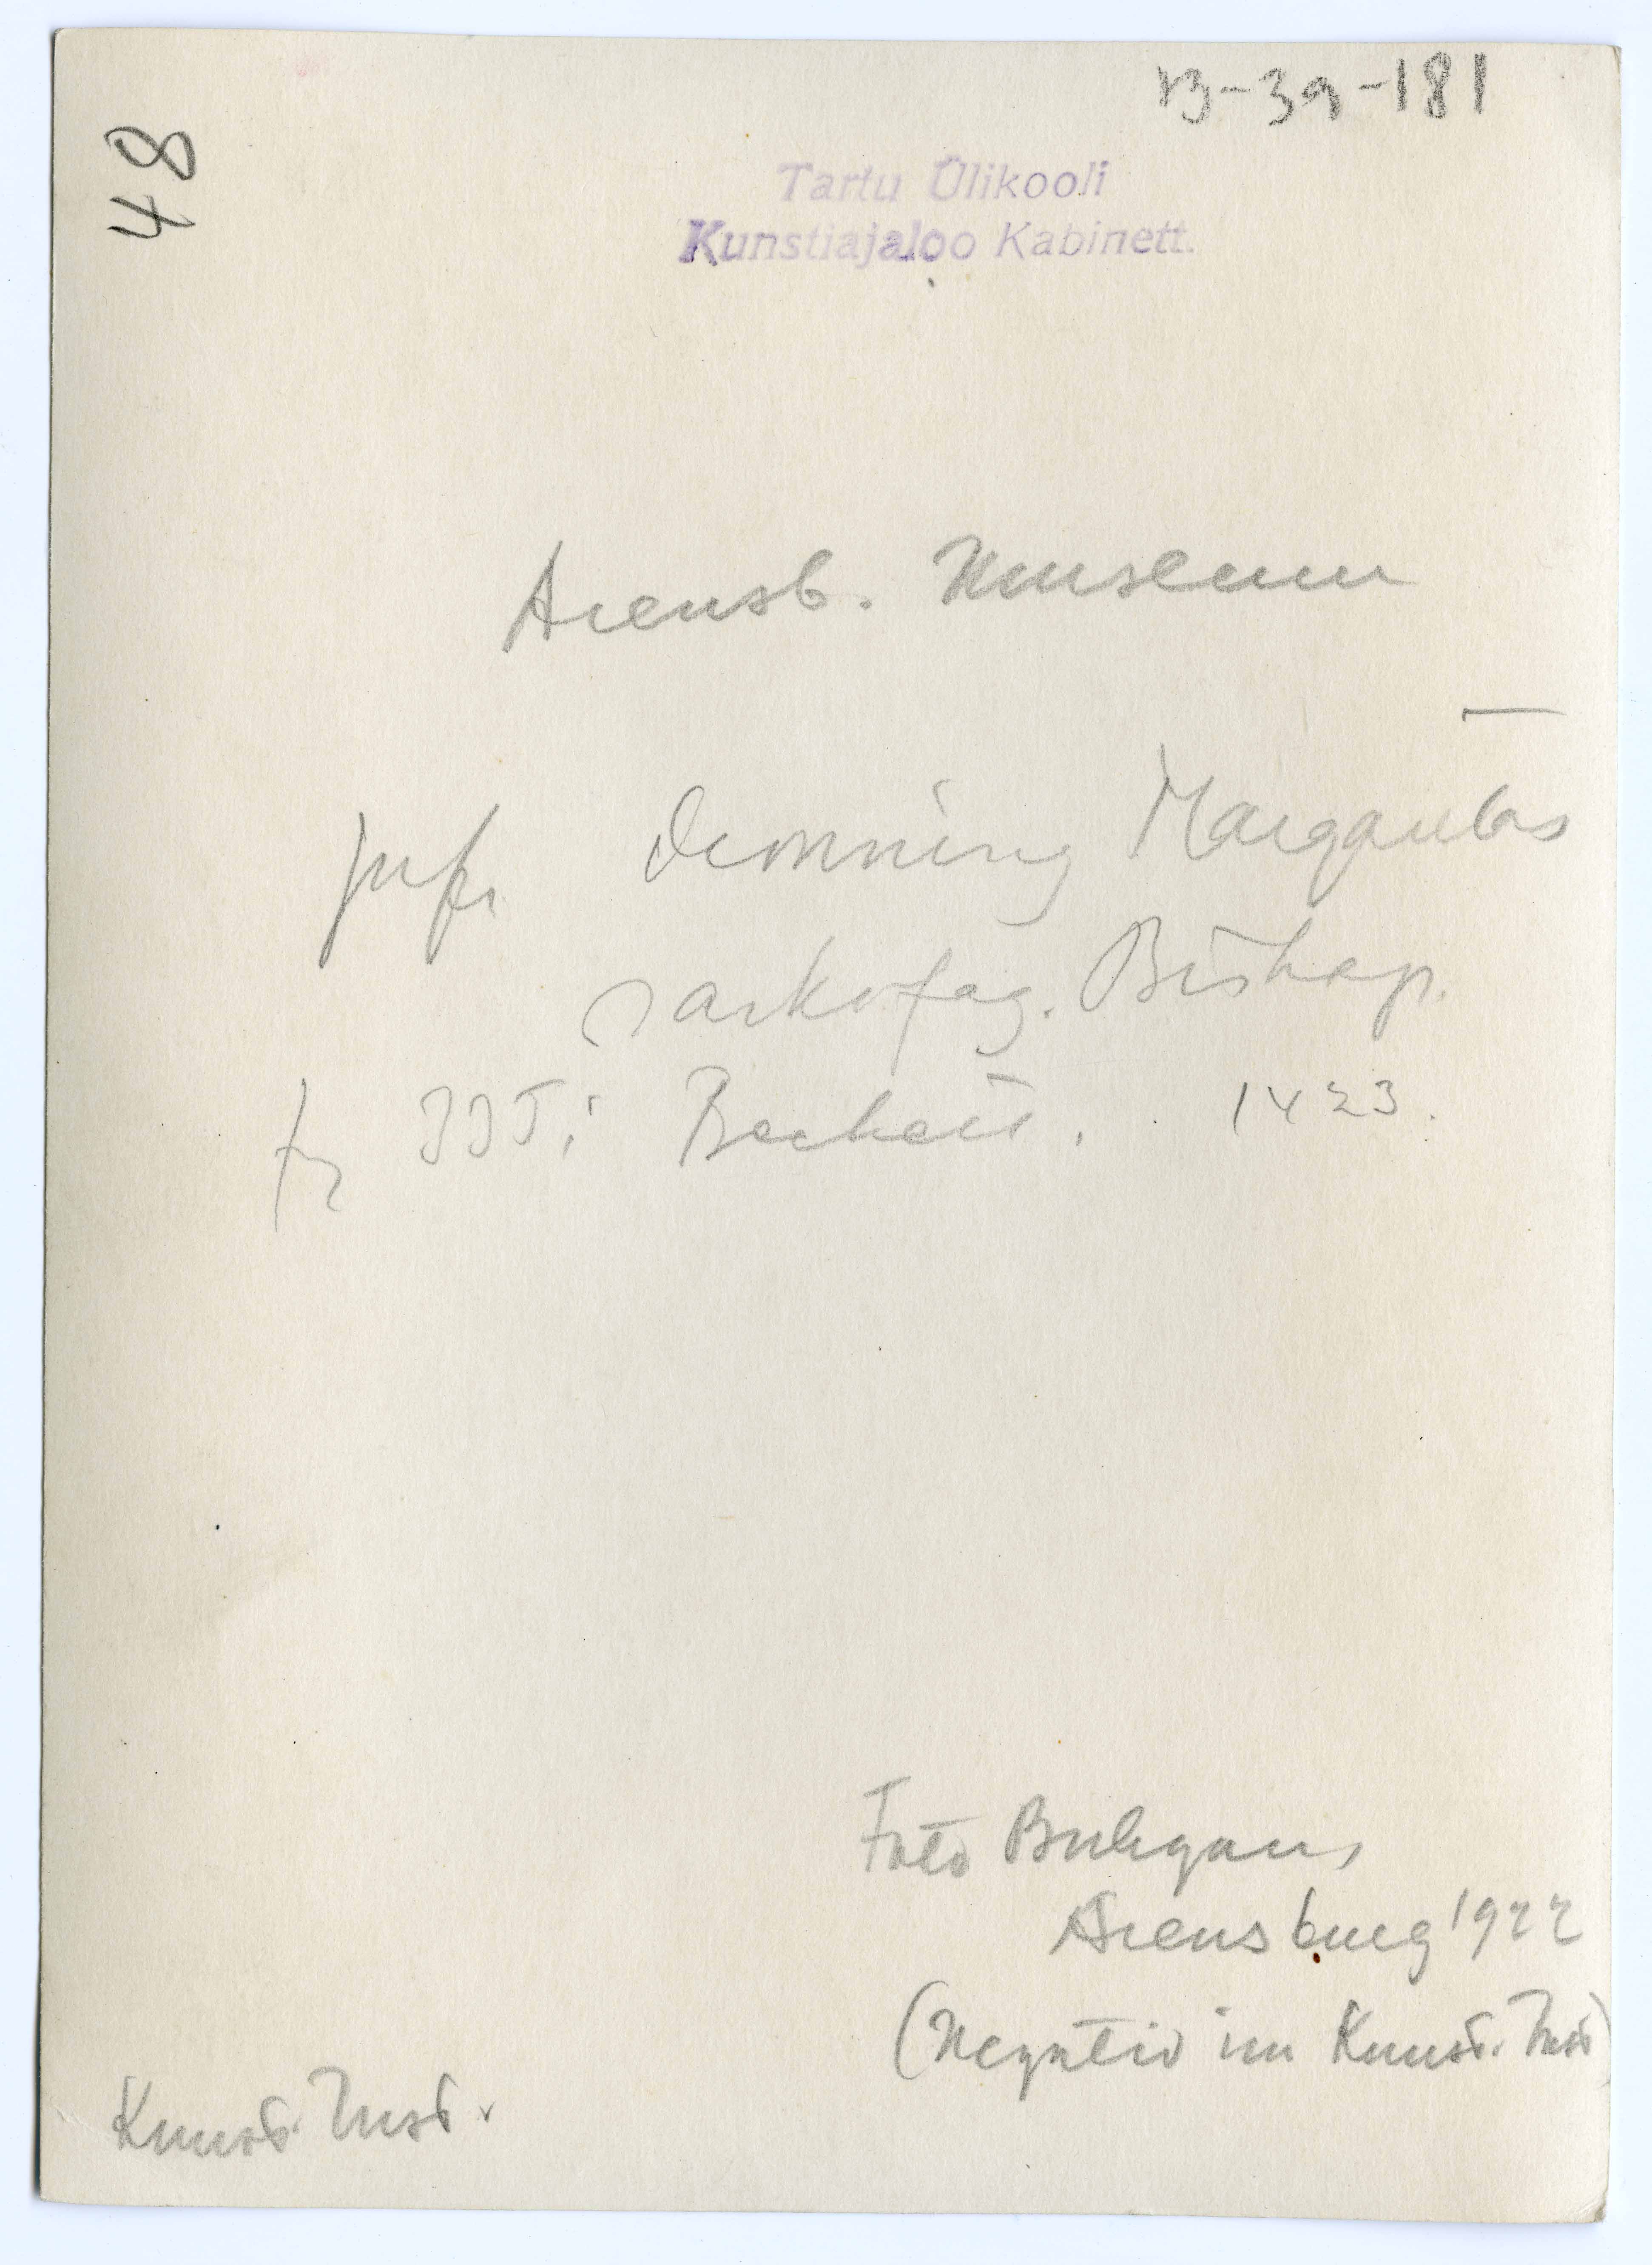 13-39-181
48
Tartu Ülikooli
Kunstiajaloo Kabinett.
Arensb. Museum
Dronning Margaretas
sarkofag. Bishop.
1423.
Foto Buhgan,
Arensburg 1922
(Negativ im Kunst. Inst)
Kunst. Inst.